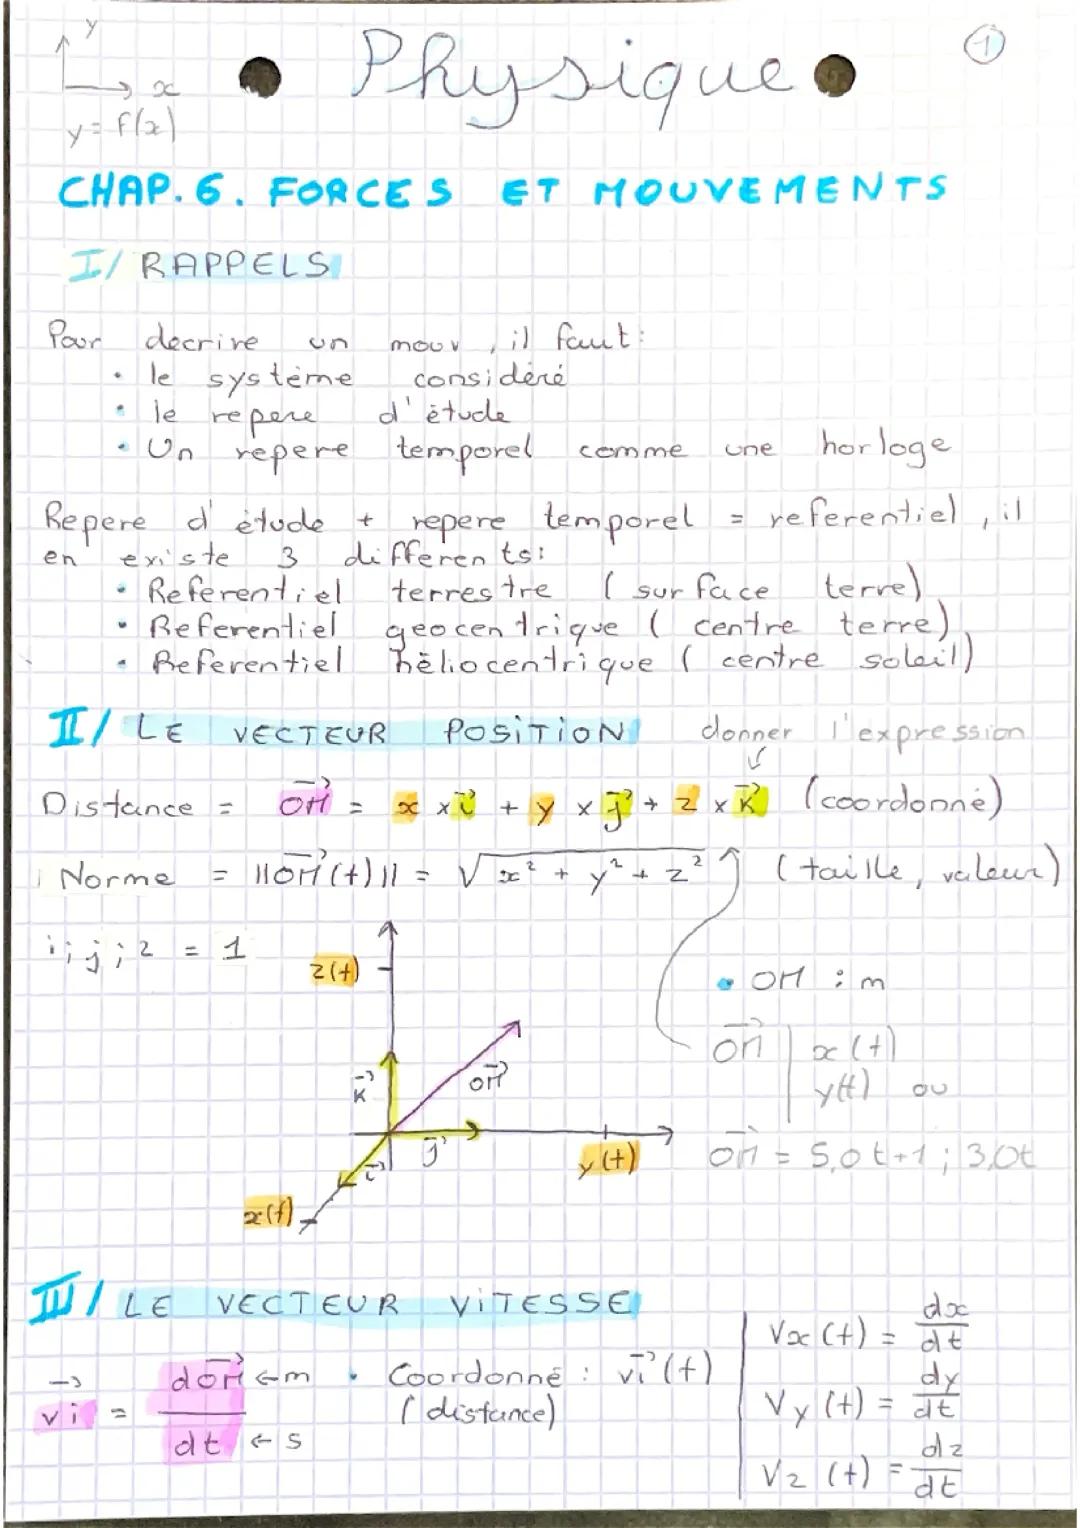 y
x
y = f(x)
Physique
1
CHAP.6. FORCES ET MOUVEMENTS
I/ RAPPELS
Pour decrire un mouv, il faut:
• le système considéré
• le repere d'étude
• Un repere temporel comme une horloge
Repere d'étude + repere temporel = referentiel, il
en existe 3 differents:
• Referentiel terrestre (surface terre)
• Referentiel geocentrique (centre terre)
• Referentiel héliocentrique (centre soleil)
II/ LE VECTEUR POSITION
donner l'expression
Distance = OM→ = x × i→ + y × j→ + z × k→ (coordonné)
Norme = ||OM→(t)|| = √x² + y² + z² (taille, valeur)
i;j;z = 1
z(t)
• OM : m
OM→ | x(t)
y(t) ou
k→
OM→
j→
i→
y(t)
OM→ = 5,0t+1 ; 3,0t
x(t)
III/ LE VECTEUR VITESSE
vi→ = dOM→ ← m
dt ← s
• Coordonné : vi→(t)
(distance)
Vx(t) = dx/dt
Vy(t) = dy/dt
Vz(t) = dz/dt